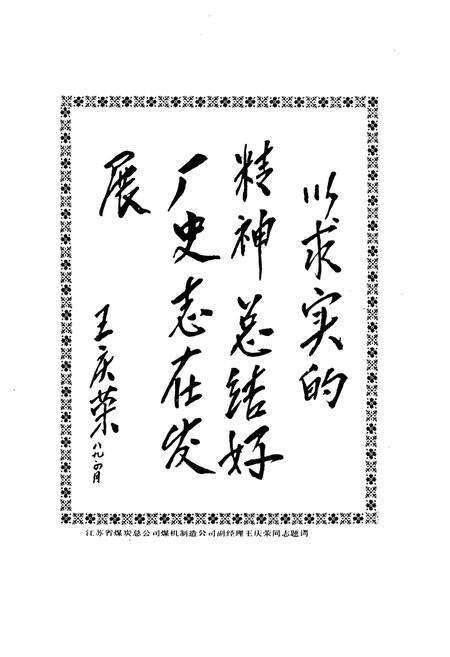 以求实的
精神总结好
厂史志在发
展
王庆荣
八九.四月
江苏省煤炭总公司煤机制造公司副经理王庆荣同志题词